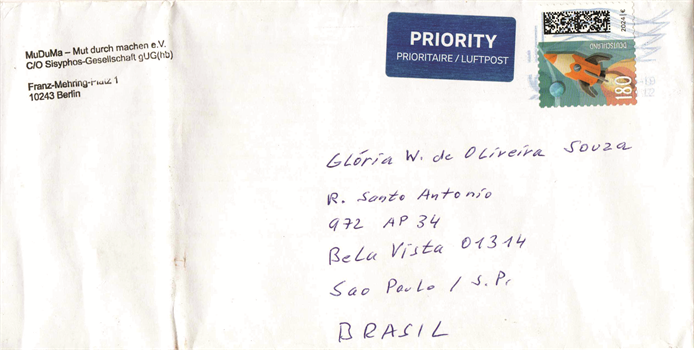 MuDuMa – Mut durch machen e.V.
C/O Sisyphos-Gesellschaft gUG(hb)
Franz-Mehring-Platz 1
10243 Berlin
PRIORITY
PRIORITAIRE / LUFTPOST
2024 | €
DEUTSCHLAND
180
Glória W. de Oliveira Souza
R. Santo Antonio
972 AP 34
Bela Vista 01314
Sao Paulo / S.P.
BRASIL